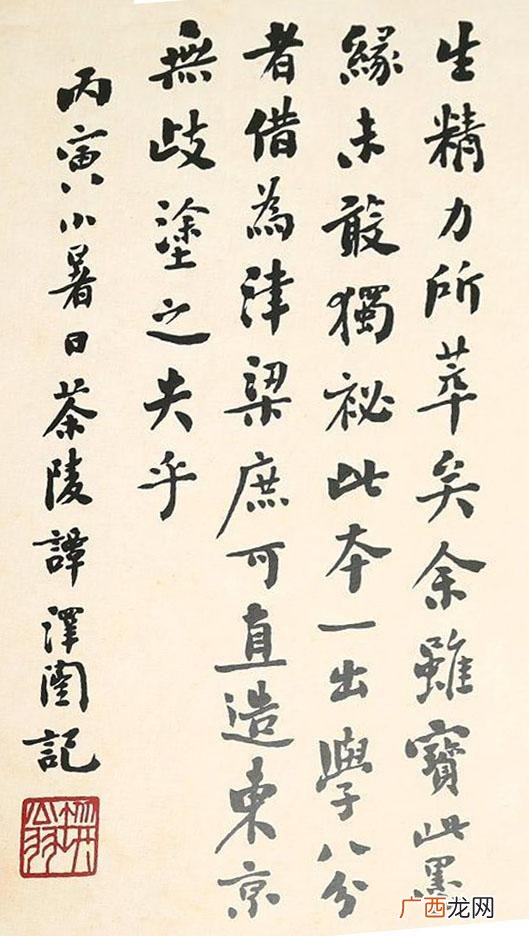 生精力所萃矣余雖寶此墨
緣未敢獨祕此本一出學八分
者借為津梁庶可直造東京
無歧塗之失乎
丙寅小暑日茶陵譚澤闓記
广西龙网